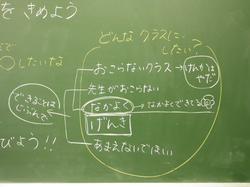 を きめよう
どんな クラスに
したい？
で
〇したいな
おこらないクラス
けんかは
やだ
先生がおこらない
なかよく
なかよくできてる
できることは
じぶんで
げんき
あまえないでほしい
びよう！！